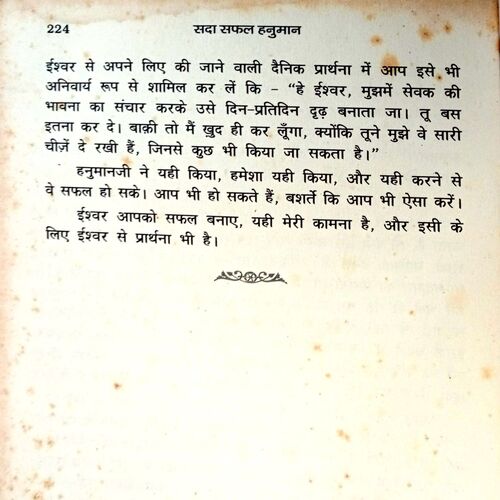 224 सदा सफल हनुमान
ईश्वर से अपने लिए की जाने वाली दैनिक प्रार्थना में आप इसे भी
अनिवार्य रूप से शामिल कर लें कि - “हे ईश्वर, मुझमें सेवक की
भावना का संचार करके उसे दिन-प्रतिदिन दृढ़ बनाता जा। तू बस
इतना कर दे। बाक़ी तो मैं ख़ुद ही कर लूँगा, क्योंकि तूने मुझे वे सारी
चीज़ें दे रखी हैं, जिनसे कुछ भी किया जा सकता है।”
हनुमानजी ने यही किया, हमेशा यही किया, और यही करने से
वे सफल हो सके। आप भी हो सकते हैं, बशर्ते कि आप भी ऐसा करें।
ईश्वर आपको सफल बनाए, यही मेरी कामना है, और इसी के
लिए ईश्वर से प्रार्थना भी है।